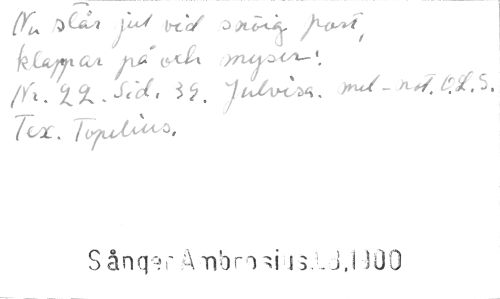 Nu står jul vid snöig port,
klappar på och myser!
Nr. 22. Sid. 39. Julvisa. mel-not. O.L.S.
Tex. Topelius.
Sånger Ambrosius